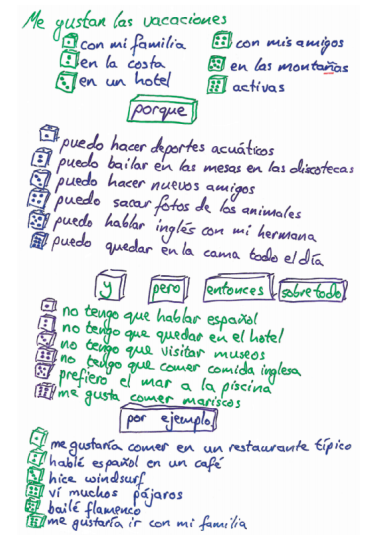 Me gustan las vacaciones
con mi familia
con mis amigos
en la costa
en las montañas
en un hotel
activas
porque
puedo hacer deportes acuáticos
puedo bailar en las mesas en las discotecas
puedo hacer nuevos amigos
puedo sacar fotos de los animales
puedo hablar inglés con mi hermana
puedo quedar en la cama todo el día
y pero entonces sobre todo
no tengo que hablar español
no tengo que quedar en el hotel
no tengo que visitar museos
no tengo que comer comida inglesa
prefiero el mar a la piscina
me gusta comer mariscos
por ejemplo
me gustaría comer en un restaurante típico
hablé español en un café
hice windsurf
ví muchos pájaros
bailé flamenco
me gustaría ir con mi familia